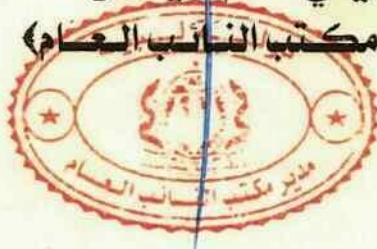 مكتب النائب العام﴾
مدير مكتب النائب العام